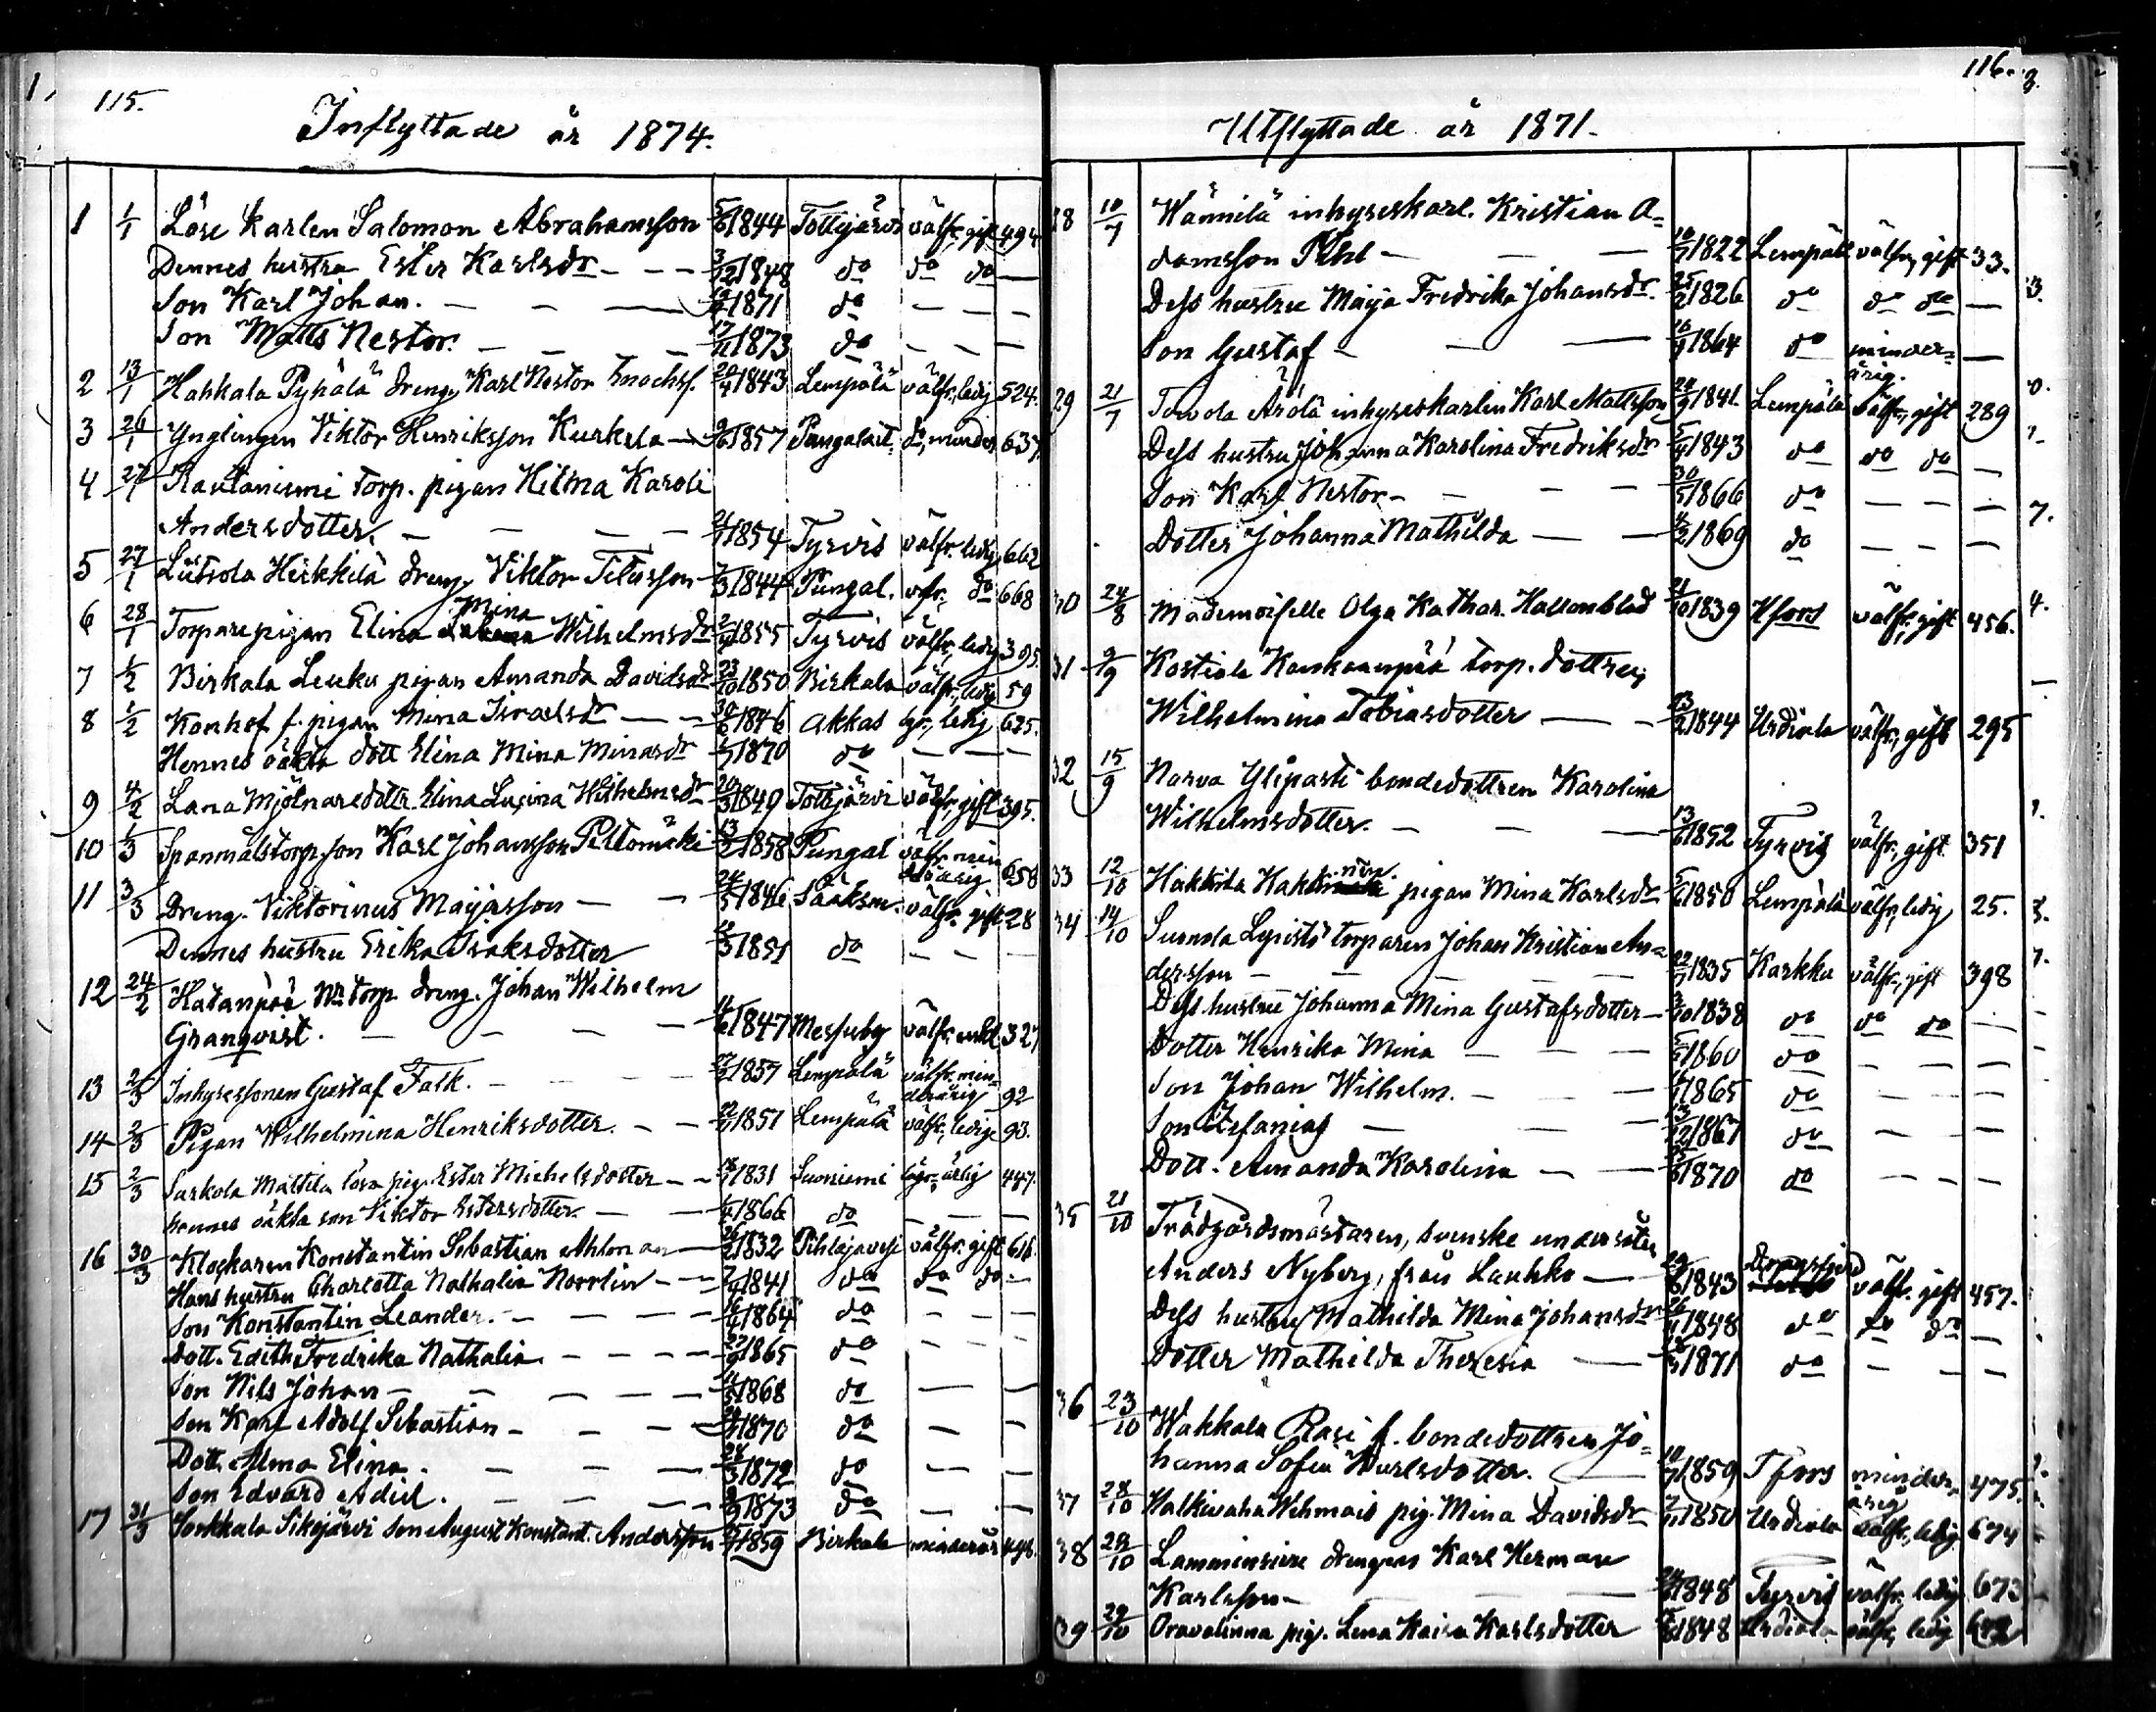 115.
Inflyttade år 1874.
1 1/1 Löse karlen Salomon Abrahamsson 5/6 1844 Tottijärvi välfr. gift 494
Dennes hustru Ester Karlsdr 3/12 1848 do do do
Son Karl Johan. 1871 do
Son Matts Nestor. 17/11 1873 do
2 13/1 Hakkala Pyhälä dreng. Karl Nestor Enochsf. 20/4 1843 Lempälä välfr., ledig 524.
3 26/1 Ynglingen Viktor Henriksson Kurkela 9/6 1857 Pungalait. do, minder 637.
4 27/1 Rautaniemi torp. pigan Hilma Karoli
Andersdotter. 1854 Tyrvis välfr. ledig 662
5 27/1 Liitsola Heikkilä dreng. Viktor Titusson 7/3 1844 Pungal. vfr., do 668
6 28/1 Torparepigan Elina Mina Wilhelmsdr 2/4 1855 Tyrvis välfr., ledig 395.
7 1/2 Birkala Leuku pigan Amanda Davidsdr 23/10 1850 Birkala välfr., ledig 59
8 1/2 Konhof f. pigan Mina Israelsdr 30/6 1846 Akkas lgr., ledig 625.
Hennes oäkta dott Elina Mina Minasdr 1870 do
9 4/2 Lana Mjölnaredottr. Elina Lusina Wilhelmsdr 20/3 1849 Tottijärvi välfr, gift 395.
10 1/3 Spannmålstorp. son Karl Johansson Peltomäki 13/2 1858 Pungal välfr. min
derårig. 658
11 3/3 Dreng. Viktorinus Maijasson 24/5 1846 Sääksm. välfr. gift 28
Dennes hustru Erika Isaksdotter 1851 do
12 24/2 Hatanpää Nr torp dreng. Johan Wilhelm
Granqvist. 1847 Messuby välfr. enkl. 327
13 2/3 Inhysessonen Gustaf Falk. 1857 Lempälä välfr. min-
derårig 92
14 2/3 Pigan Wilhelmina Henriksdotter. 1851 Lempälä välfr., ledig 93.
15 2/3 Sarkola Mattila lösa pig. Ester Michelsdotter 1831 Suoniemi lägr., ärlig 447.
hennes oäkta son Viktor Estersdotter. 1866 do
16 30/3 Klockaren Konstantin Sebastian Ahlman 1832 Pihlajavesi välfr. gift 616.
Hans hustru Charlotta Nathalia Norrlin 7/4 1841 do do do
Son Konstantin Leander. 16/4 1864 do
Dott. Edith Fredrika Nathalia 1865 do
Son Nils Johan 1868 do
Son Karl Adolf Sebastian 1870 do
Dott. Alma Elina. 28/3 1872 do
Son Edvard Adiel. 1873 do
17 31/3 Sorkkala Pikojärvi son August Konstant. Andersson 1859 Birkala minderår 448.
116.
Utflyttade år 1871.
28 10/7 Wännilä inhyseskarl. Kristian A-
damsson Pihl 1822 Lempälä välfr, gift 33.
Dess hustru Maija Fredrika Johansdr. 25/2 1826 do do do
Son Gustaf 1864 do minder-
årig.
29 21/7 Tavola Ärölä inhyseskarlen Karl Mattsson 1841 Lempälä välfr., gift 289
Dess hustru Johanna Karolina Fredriksdr 5/4 1843 do do do
Son Karl Nestor 30/5 1866 do
Dotter Johanna Mathilda 1869 do
30 24/8 Mademoiselle Olga Kathar. Hallonblad 21/10 1839 Hfors välfr, gift 456.
31 9/9 Kostiala Kaukaanpää torp. dottren,
Wilhelmina Tobiasdotter 1844 Urdiala välfr., gift 295
32 15/9 Narva Ylipasti bondedottren Karolina
Wilhelmsdotter. 13/6 1852 Tyrvis välfr., gift 351
33 12/10 pigan Mina Karlsdr 5/6 1850 Lempälä välfr, ledig 25.
34 14/10 Suomela torparen Johan Kristian An-
dersson 1835 Karkku välfr., gift 398
Dess hustru Johanna Mina Gustafsdotter 3/10 1838 do do do
Dotter Henrika Mina 1860 do
Son Johan Wilhelm. 1865 do
Son Zefanias 1867 do
Dott. Amanda Karolina 1870 do
35 21/10 Trädgårdsmästaren, svenske undersåten
Anders Nyberg, från Laukko 1843 välfr. gift 457.
Dess hustru Mathilda Mina Johansdr 1848 do do do
Dotter Mathilda Theresia 1871 do
36 23/10 Wakkala Rasi f. bondedottren Jo-
hanna Sofia Karlsdotter. 1859 Tfors minder-
årig 475.
37 28/10 Halkivaha Wehmais pig. Mina Davidsdr 1850 Urdiala välfr., ledig 674
38 29/10 drengen Karl Herman
Karlsson 1848 Tyrvis välfr. ledig 673
39 29/10 Oravalinna pig. Lena Kaisa Karlsdotter 1848 Urdiala välfr, ledig